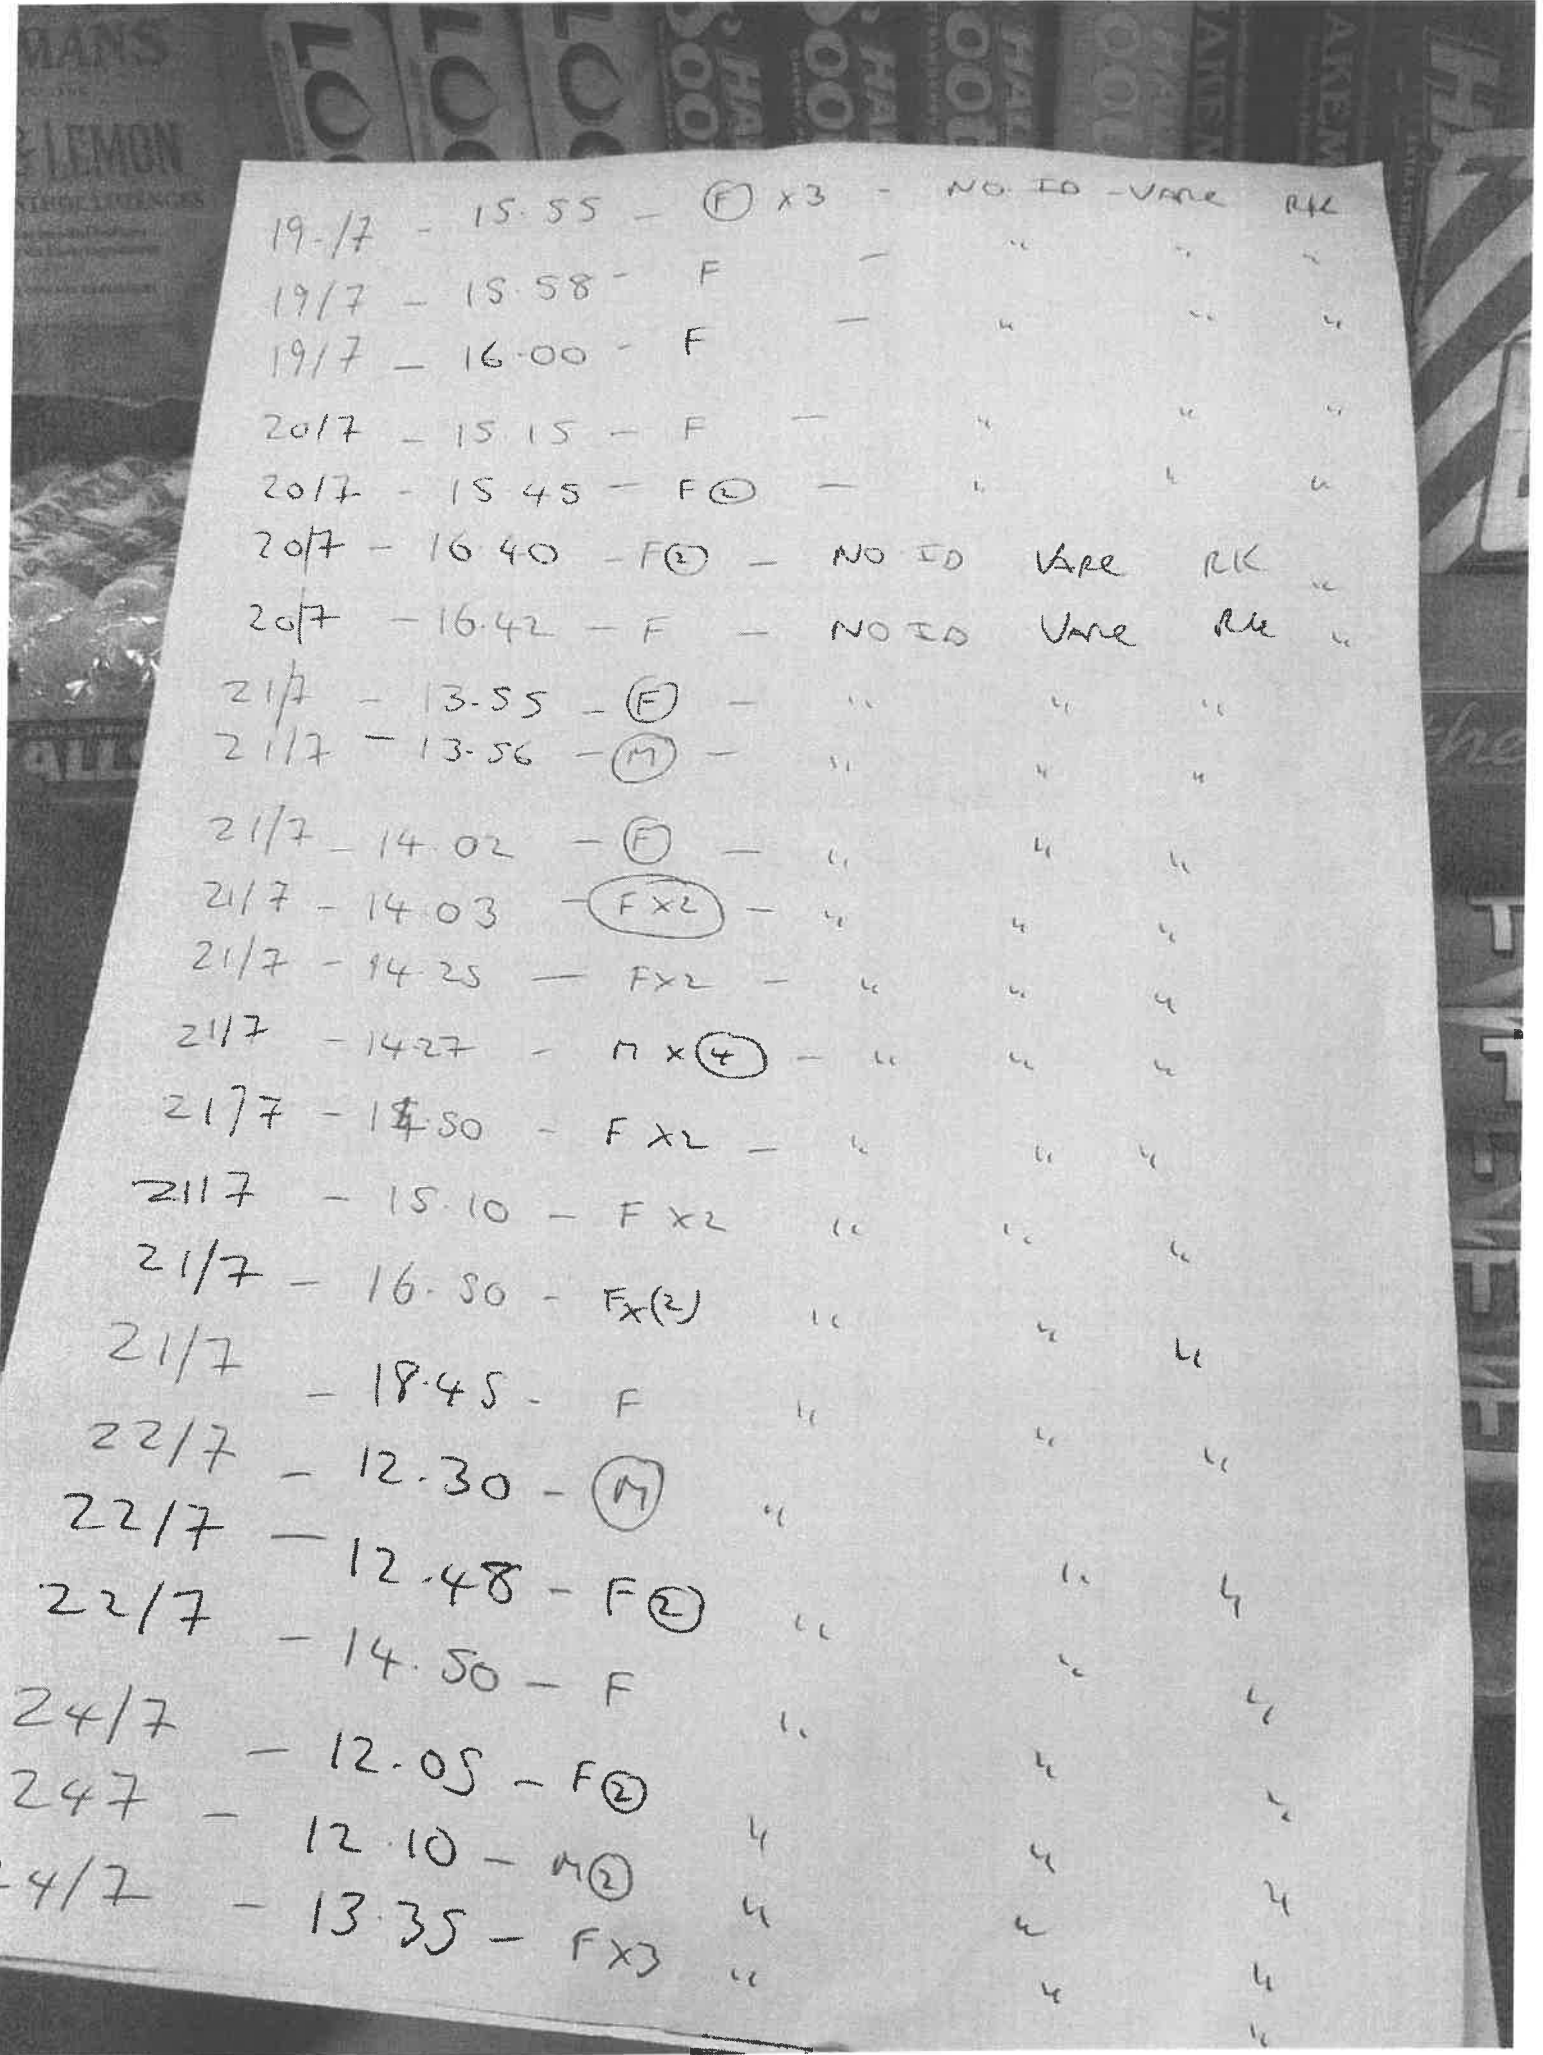 MANS
& LEMON
19-/7 - 15.55 - F x3 - NO ID - VAPE RK
19/7 - 15.58 - F - " " "
19/7 - 16.00 - F - " " "
20/7 - 15 15 - F - " " "
20/7 - 15 45 - F 2 - " " "
20/7 - 16 40 - F 2 - NO ID VAPE RK "
20/7 - 16.42 - F - NO ID VAPE RK "
21/7 - 13.55 - F - " " "
21/7 - 13.56 - M - " " "
21/7 - 14.02 - F - " " "
21/7 - 14.03 - F X2 - " " "
21/7 - 14.25 - FX2 - " " "
21/7 - 1427 - M X 4 - " " "
21/7 - 14.50 - F X2 - " " "
21/7 - 15.10 - F X2 " " "
21/7 - 16.50 - FX(2) " " "
21/7 - 18.45 - F " " "
22/7 - 12.30 - M " " "
22/7 - 12.48 - F 2 " " "
22/7 - 14.50 - F " " "
24/7 - 12.05 - F 2 " " "
247 - 12.10 - M 2 " " "
4/7 - 13.35 - FX3 " " "